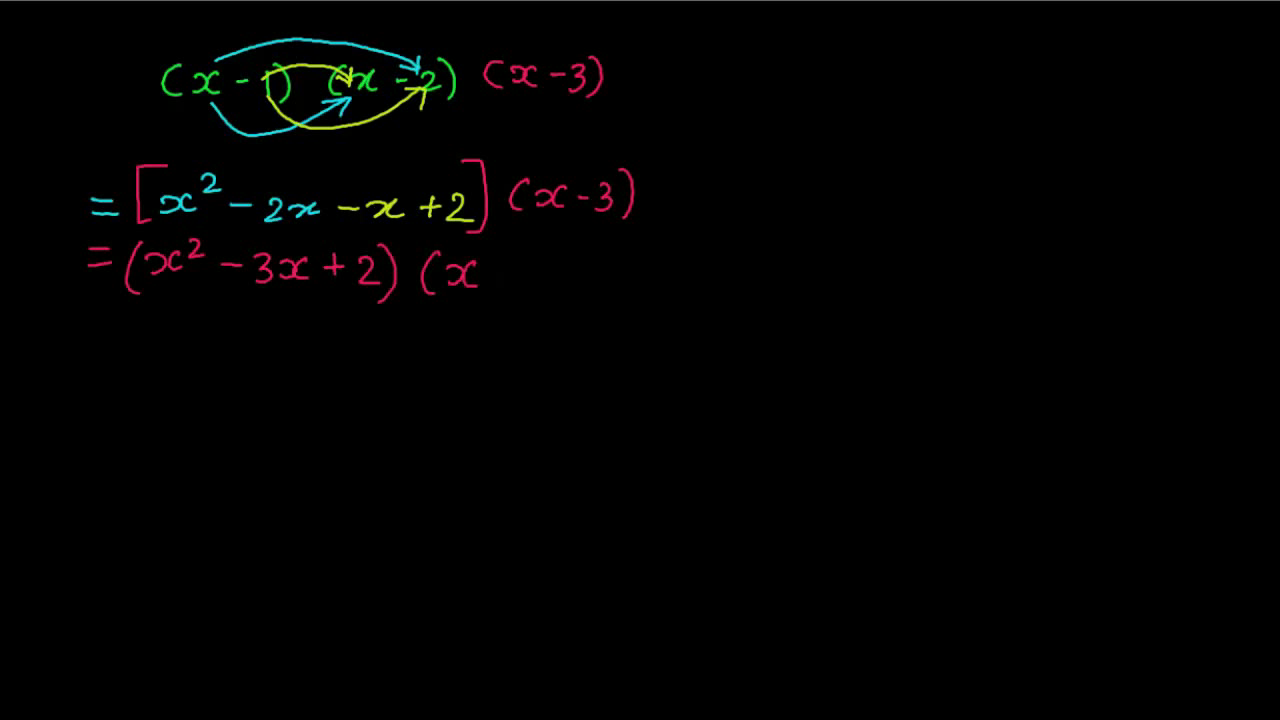 (x - 1) (x - 2) (x - 3)
= [x² - 2x - x + 2] (x - 3)
= (x² - 3x + 2) (x